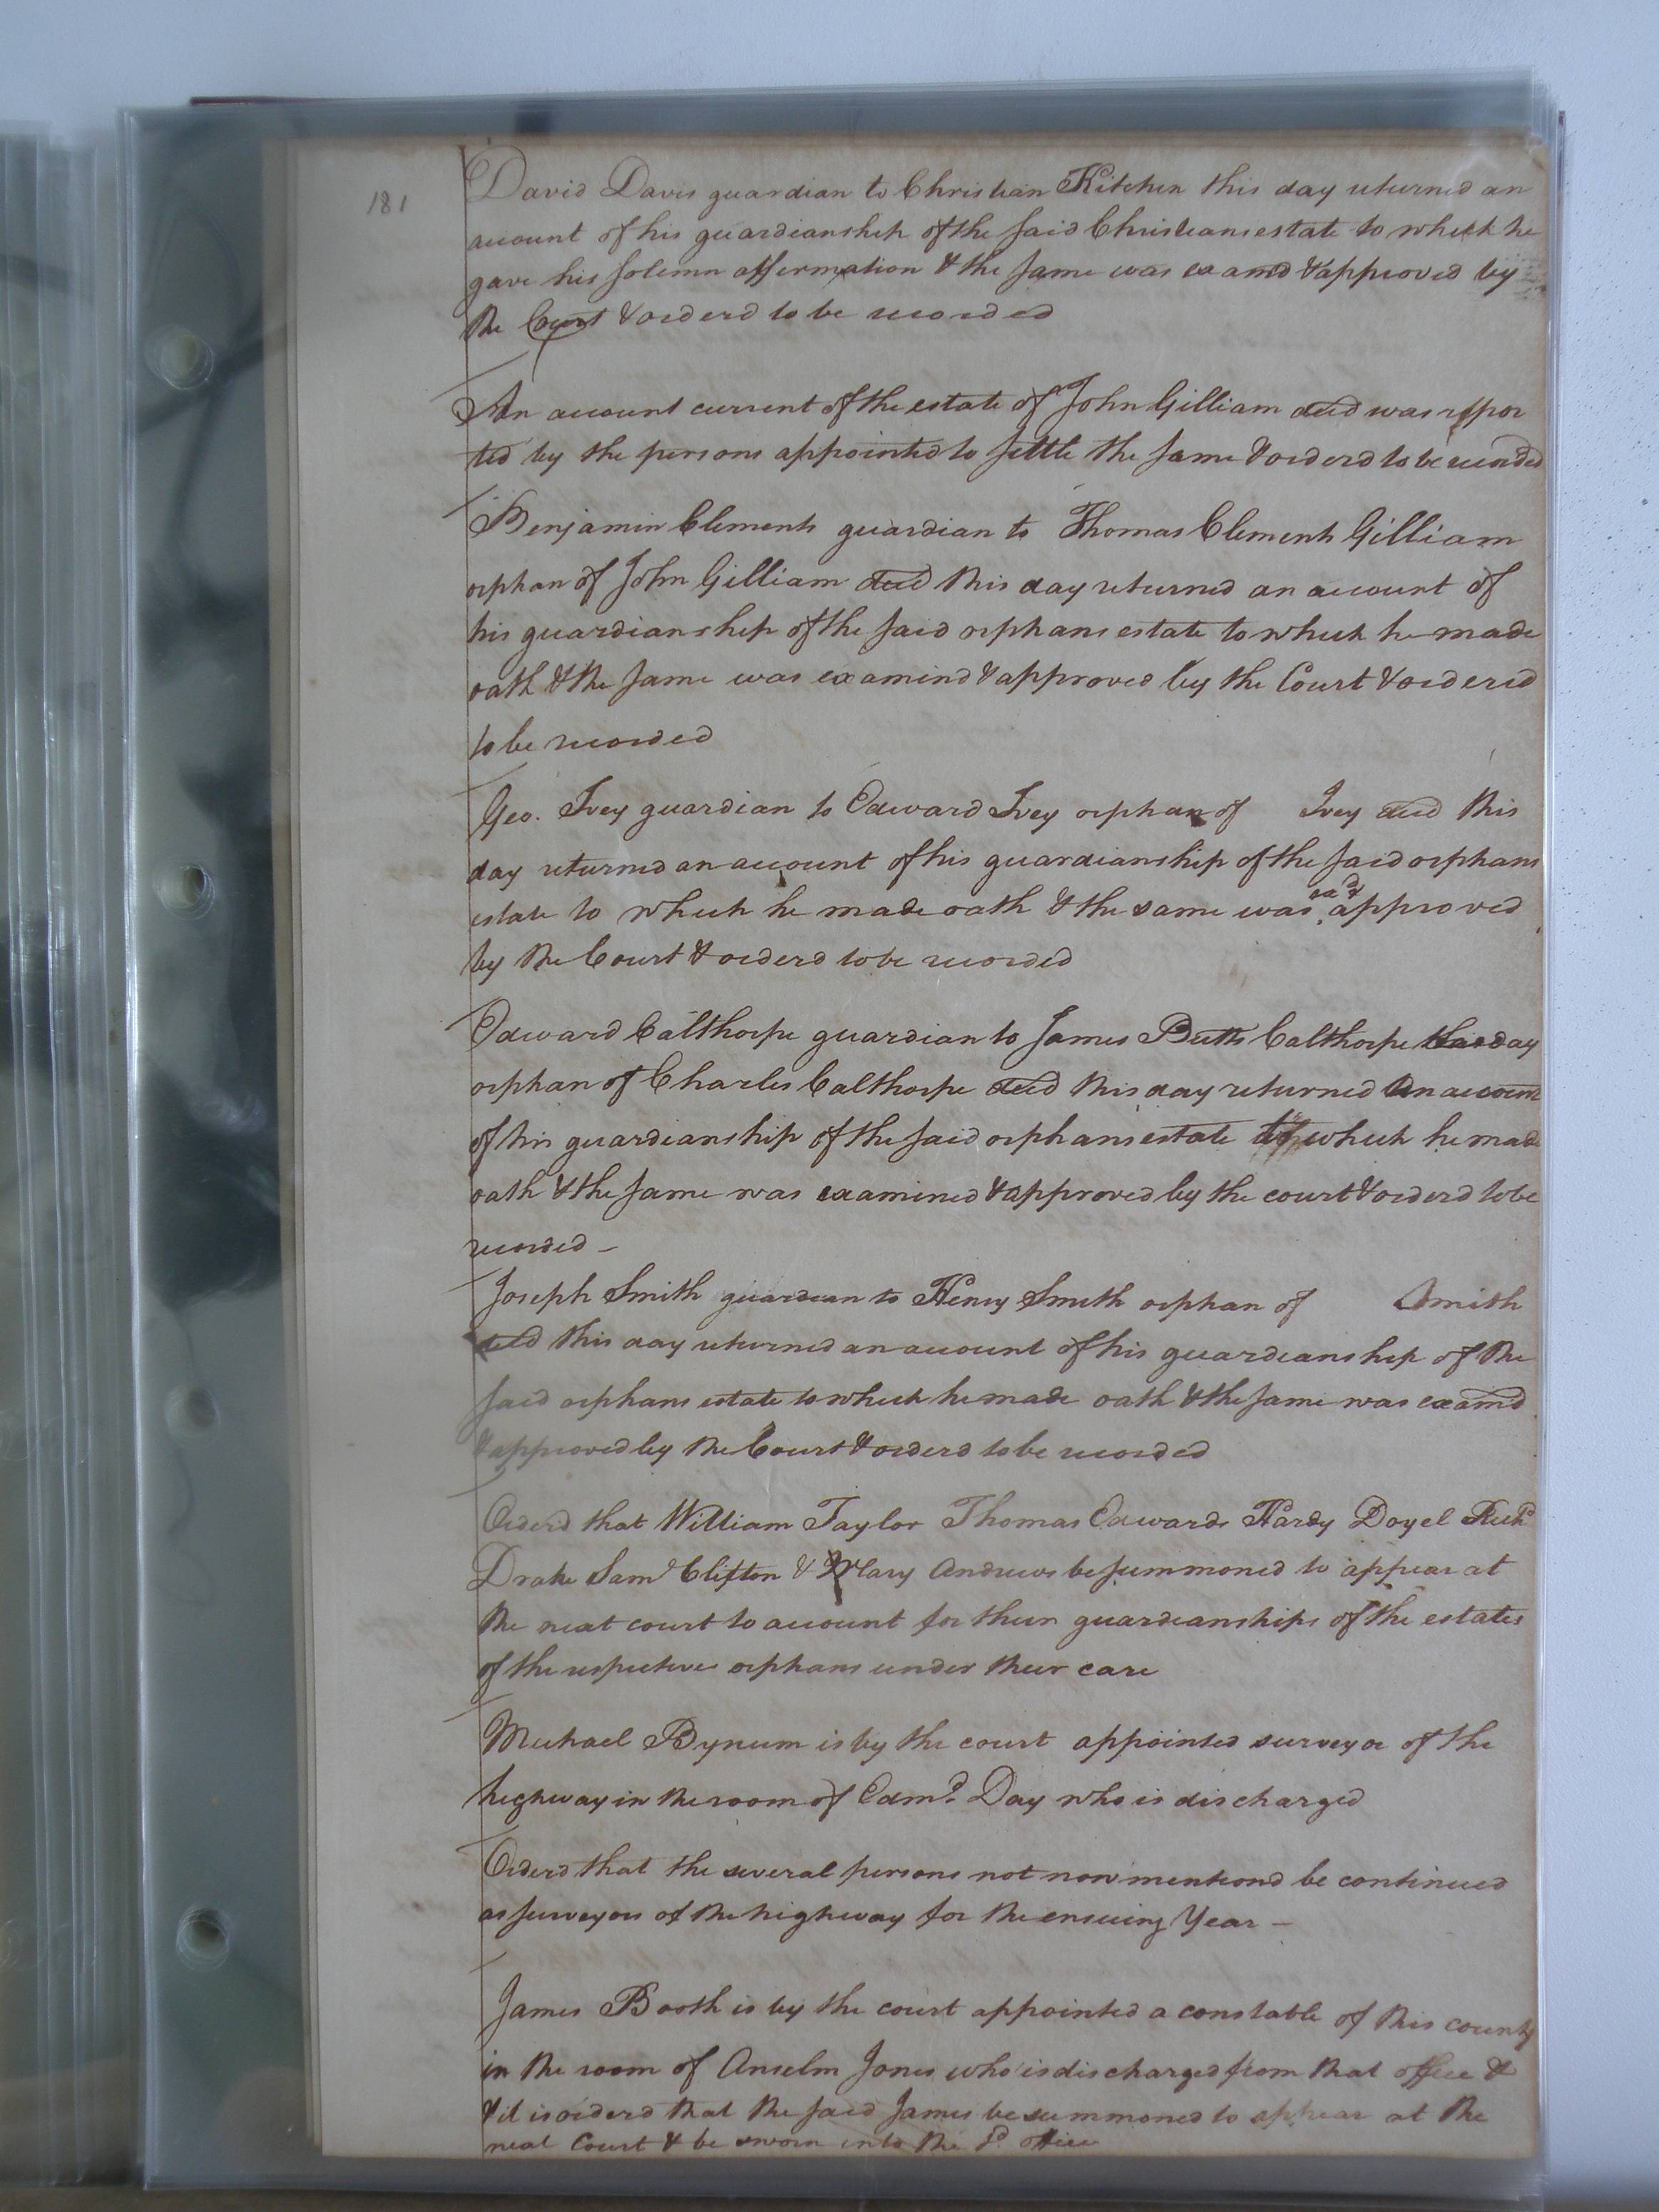 181
David Davis guardian to Christian Kitchen this day returned an
account of his guardianship of the said Christians estate to which he
gave his solemn affirmation & the same was examd & approved by
the Court & orderd to be recorded
An account current of the estate of John Gilliam decd was repor
ted by the persons appointed to settle the same & orderd to be recorded
Benjamin Clements guardian to Thomas Clements Gilliam
orphan of John Gilliam decd this day returned an account of
his guardianship of the said orphans estate to which he made
oath & the same was examind & approved by the Court & ordered
to be recorded
Geo. Ivey guardian to Edward Ivey orphan of Ivey decd this
day returned an account of his guardianship of the said orphans
estate to which he made oath & the same was exd & approved
by the Court & orderd to be recorded
Edward Calthorpe guardian to James Butts Calthorpe this day
orphan of Charles Calthorpe decd this day returned an account
of his guardianship of the said orphans estate to which he made
oath & the same was examined & approved by the court & orderd to be
recorded -
Joseph Smith guardian to Henry Smith orphan of Smith
decd this day returned an account of his guardianship of the
said orphans estate to which he made oath & the same was examd
& approved by the Court & orderd to be recorded
Orderd that William Taylor Thomas Edwards Hardy Doyel Richd
Drake Saml Clifton & Mary Andrews be summoned to appear at
the next court to account for their guardianships of the estates
of the respective orphans under their care
Michael Bynum is by the court appointed surveyor of the
highway in the room of Edmd Day who is discharged
Orderd that the several persons not now mentiond be continued
as surveyors of the highway for the ensuing Year -
James Booth is by the court appointed a constable of this county
in the room of Anselm Jones who is discharged from that office &
& it is orderd that the said James be summoned to appear at the
next Court & be sworn into the sd office